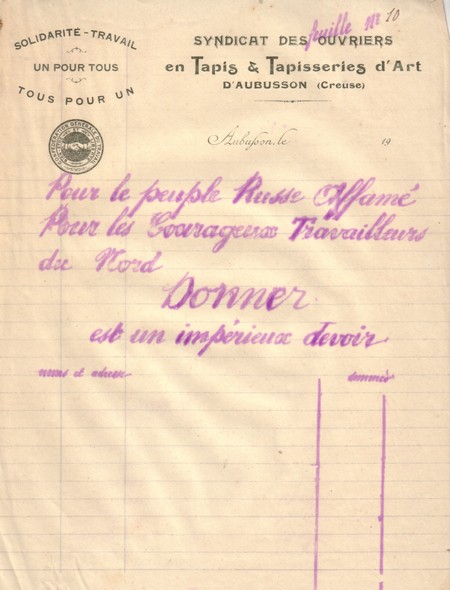 feuille No 10
SOLIDARITÉ - TRAVAIL
UN POUR TOUS
TOUS POUR UN
SYNDICAT DES OUVRIERS
en Tapis & Tapisseries d'Art
D'AUBUSSON (Creuse)
Aubusson, le 19
Pour le peuple Russe Affamé
Pour les Courageux Travailleurs
du Nord
Donner
est un impérieux devoir
noms et adresse sommes